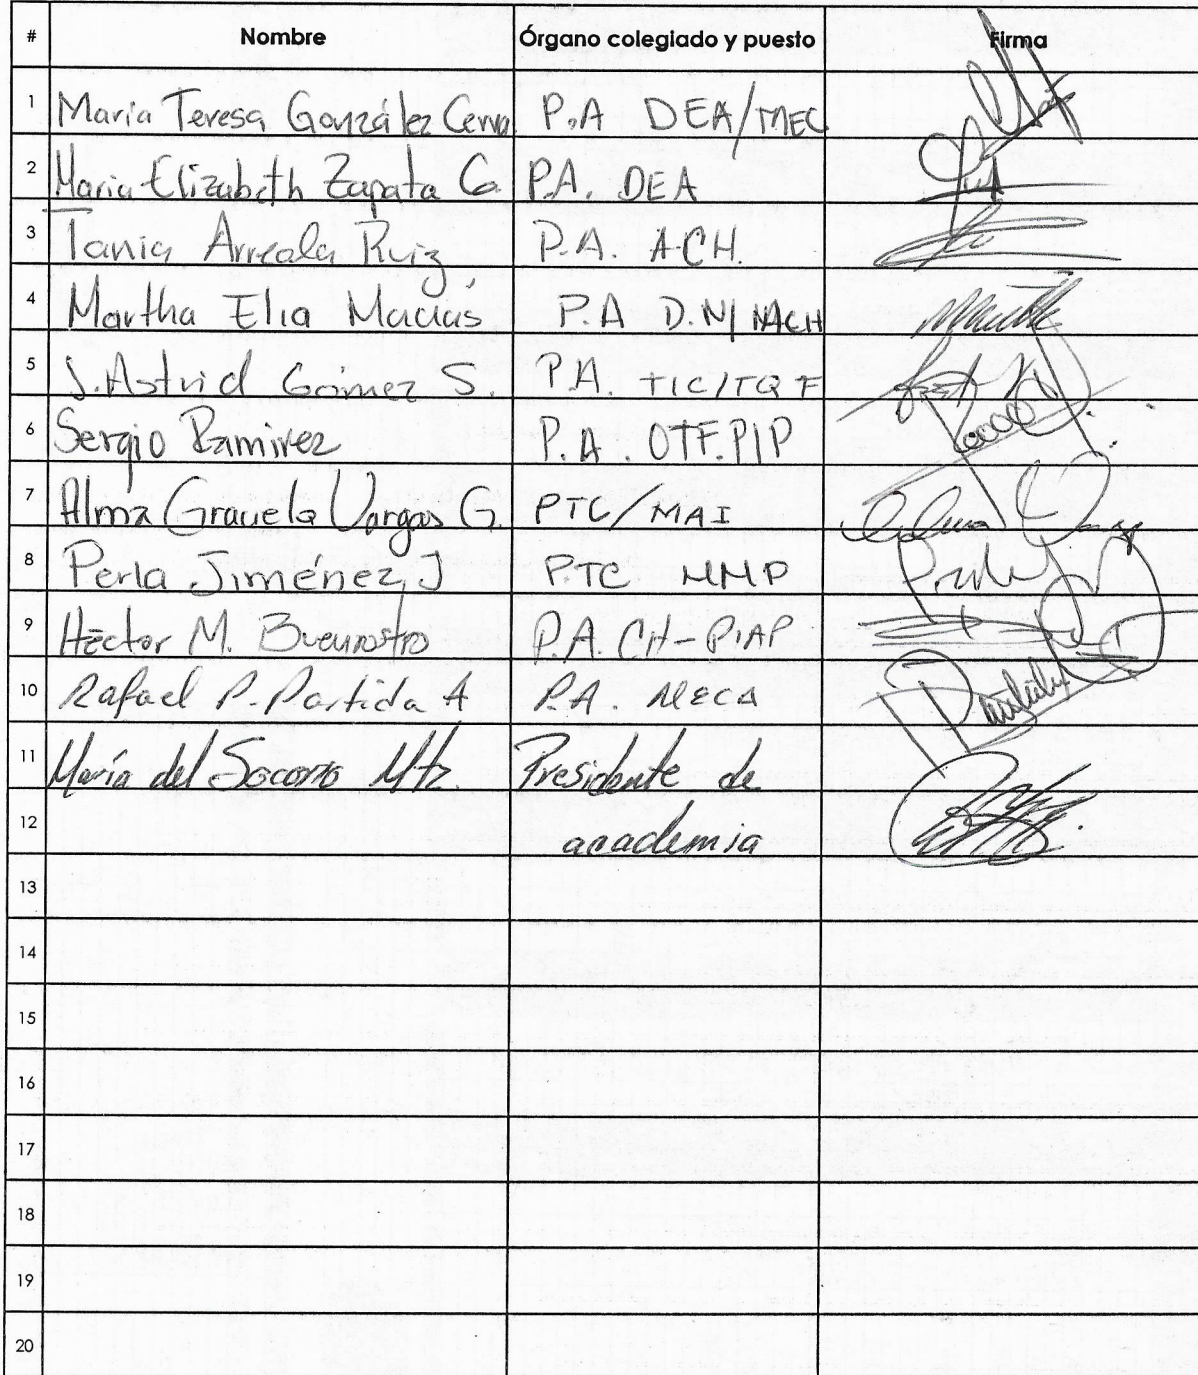 # Nombre Órgano colegiado y puesto Firma
1 Maria Teresa González Cerva P.A DEA/MEC
2 Maria Elizabeth Zapata G. P.A. DEA
3 Tania Arreola Ruiz P.A. ACH.
4 Martha Elia Macías P.A D.N/MACH
5 J. Astrid Gómez S. P.A. TIC/TQF
6 Sergio Ramirez P.A. OTF.PIP
7 Alma Graciela Vargas G. PTC/MAI
8 Perla Jiménez J PTC MMP
9 Héctor M. Buenrostro P.A. CH-PIAP
10 Rafael P. Partida A P.A. MECA
11 María del Socorro Mtz. Presidente de
12 academia
13
14
15
16
17
18
19
20